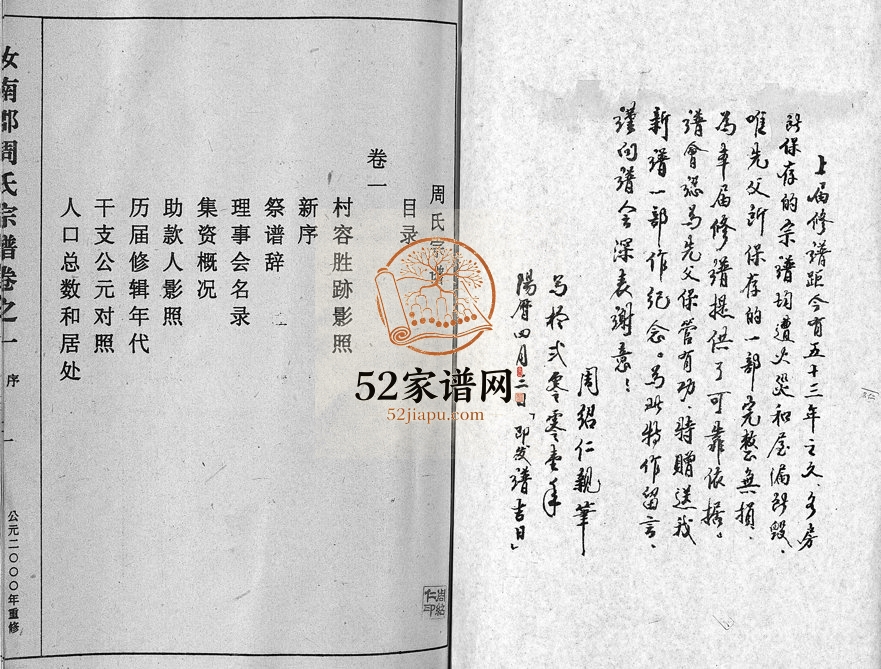 上届修谱距今有五十三年之久、各房
所保存的宗谱均遭火災和屋漏所毁、
唯先父所保存的一部完整無損、
为本届修譜提供了可靠依据。
譜會认为先父保管有功、特贈送我
新譜一部作紀念。为此特作留言、
谨向譜会深表謝意!
周紹仁親筆
写於弍零零壹年
陽曆四月三日「即发譜吉日」
周氏宗谱
目录
卷一
村容胜跡影照
新序
祭谱辞
理事会名录
集资概况
助款人影照
历届修辑年代
干支公元对照
人口总数和居处
汝南郡周氏宗谱卷之一 序
公元二〇〇〇年重修
周紹仁印
52家谱网
52jiapu.com